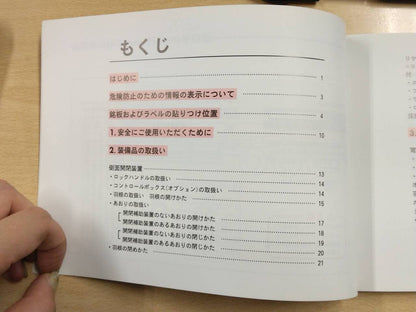 もくじ
はじめに 1
危険防止のための情報の表示について 3
銘板およびラベルの貼りつけ位置 4
1. 安全にご使用いただくために 10
2. 装備品の取扱い
側面開閉装置 13
・ロックハンドルの取扱い 14
・コントロールボックス(オプション)の取扱い 14
・羽根の取扱い 羽根の開けかた 15
・あおりの取扱い
開閉補助装置のないあおりの開けかた 17
開閉補助装置のあるあおりの開けかた 18
開閉補助装置のないあおりの閉じかた 19
開閉補助装置のあるあおりの閉じかた 20
・羽根の閉めかた 21